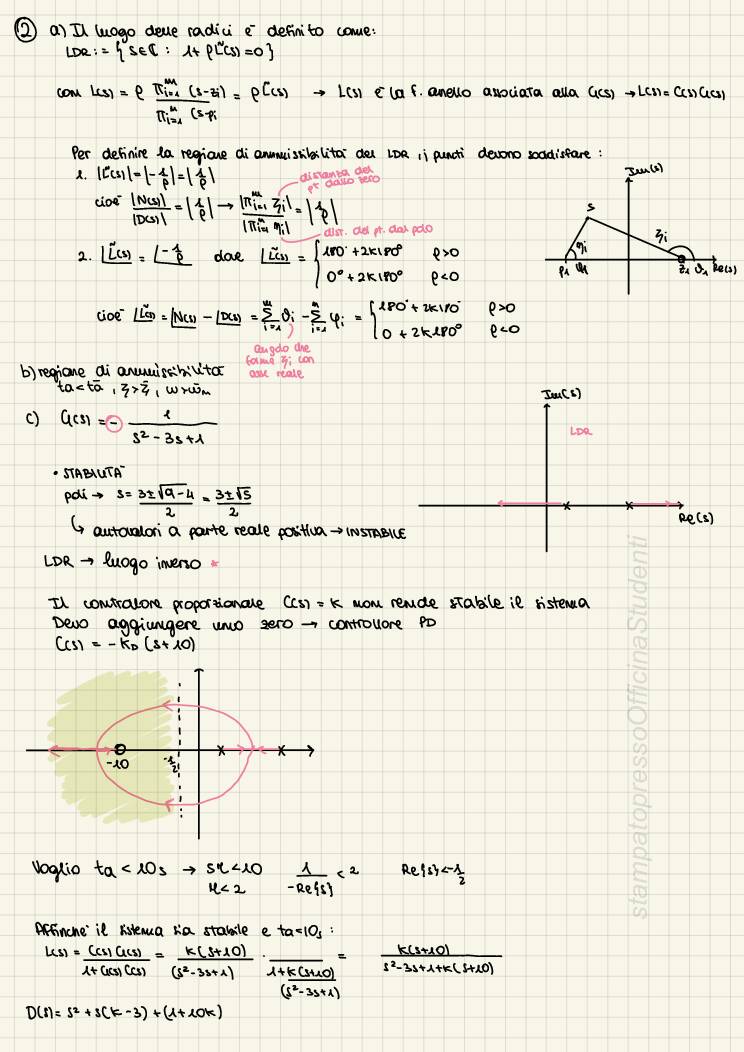 ② a) Il luogo delle radici è definito come:
LDR := { s∈ℂ : 1+ρL̃(s)=0 }
con L(s) = ρ Π_{i=1}^{m} (s-zi) / Π_{i=1}^{n} (s-pi = ρL̃(s) → L(s) è la f. anello associata alla G(s) → L(s) = C(s) G(s)
Per definire la regione di ammissibilità del LDR, i punti devono soddisfare:
1. |L̃(s)| = |-1/ρ| = |1/ρ|
distanza del pt. dallo zero
cioè |N(s)|/|D(s)| = |1/ρ| → |Π_{i=1}^{m} ξi| / |Π_{i=1}^{n} ηi| = |1/ρ|
dist. del pt. dal polo
2. ∠L̃(s) = ∠-1/ρ dove ∠L̃(s) = { 180° + 2k180° ρ>0
0° + 2k180° ρ<0
cioè ∠L̃(s) = ∠N(s) - ∠D(s) = Σ_{i=1}^{m} ϑi - Σ_{i=1}^{n} φi = { 180° + 2k180° ρ>0
0 + 2k180° ρ<0
angolo che
forma ξi con
asse reale
Im(s)
s
ηi
ξi
p1
z1
ϑ1
Re(s)
b) regione di ammissibilità
c) G(s) = - 1 / s² - 3s + 1
Im(s)
LDR
Re(s)
• STABILITÀ
poli → s = 3±√9-4 / 2 = 3±√5 / 2
↳ autovalori a parte reale positiva → INSTABILE
LDR → luogo inverso *
Il controllore proporzionale C(s) = k non rende stabile il sistema
Devo aggiungere uno zero → controllore PD
C(s) = -K_D (s+10)
-10
-1/2
Voglio ta < 10s → 5τ < 10 1 / -Re{s} < 2 Re{s} < -1/2
τ < 2
Affinché il sistema sia stabile e ta<10s :
L(s) = C(s) G(s) / 1+G(s) C(s) = k(s+10) / (s²-3s+1) · / 1+ k(s+10) / (s²-3s+1) = k(s+10) / s²-3s+1+k(s+10)
D(s) = s² + s(k-3) + (1+10k)
stampatopressoOfficinaStudenti